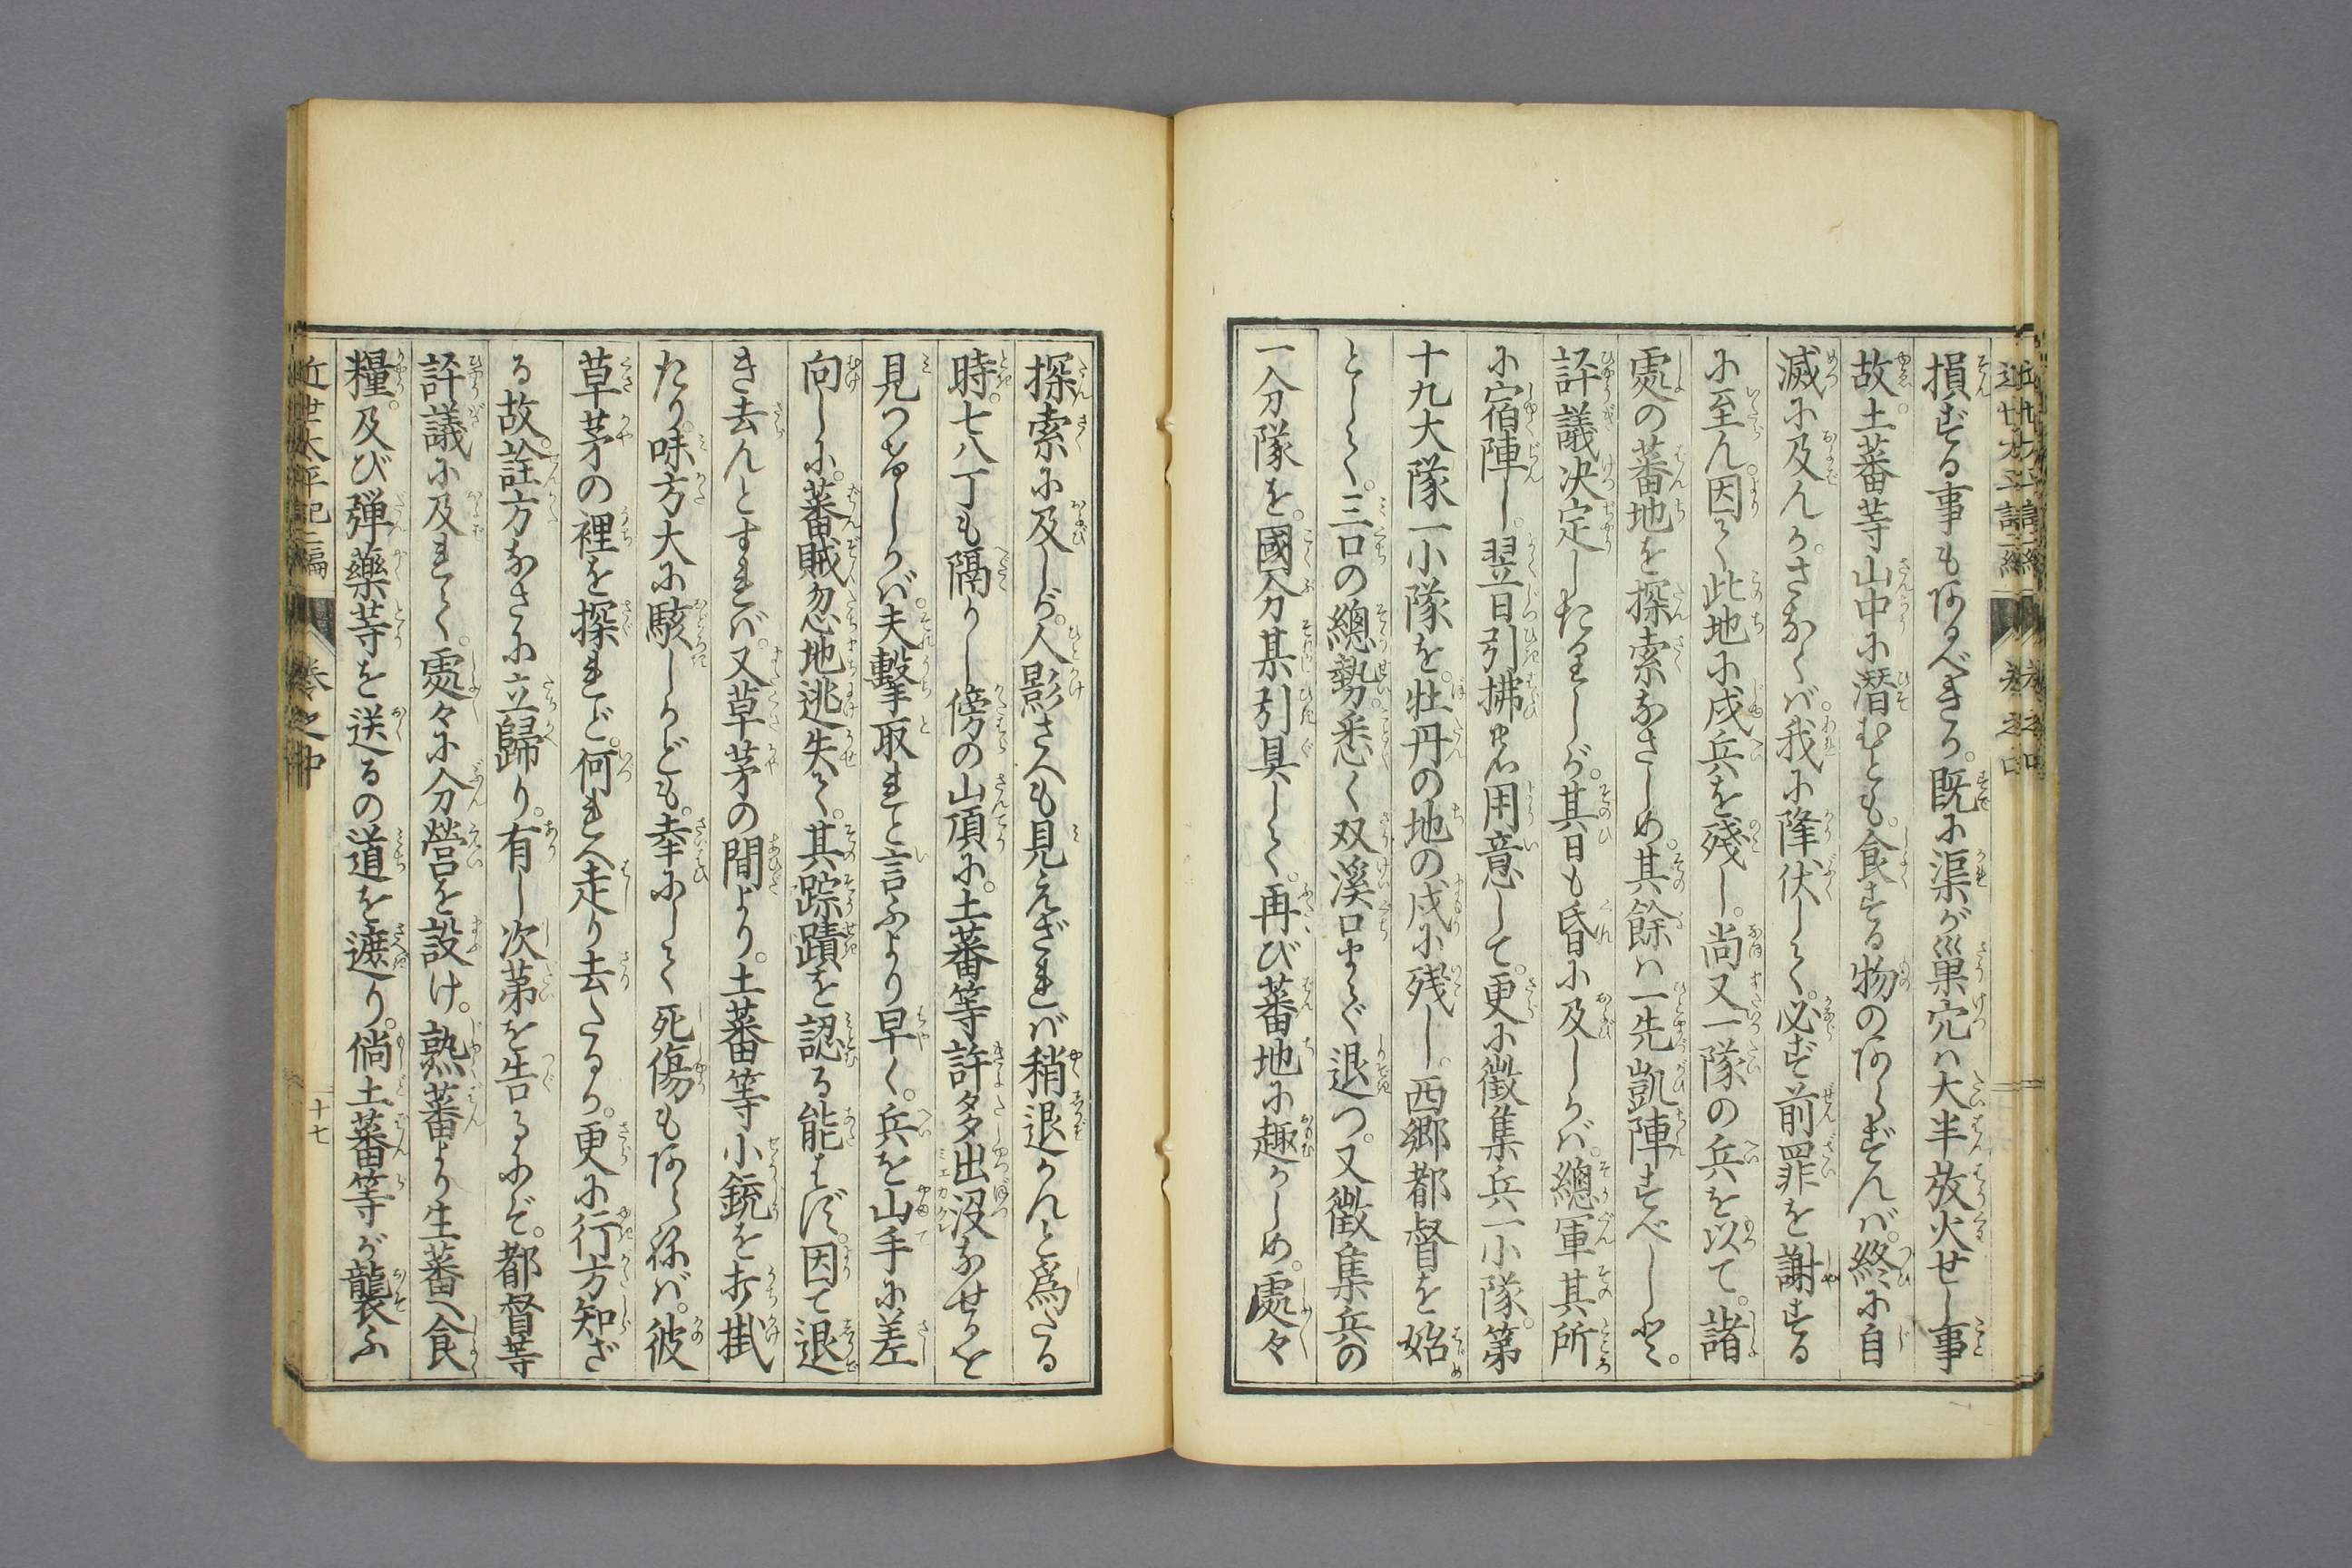 損ずる事もあるべきか。既に渠が巣穴ハ大半放火せし事
故。土蕃等山中に潜むとも。食する物のあらざれバ。終に自
滅に及んか。さなくバ。我に降伏して。必ず前罪を謝する
に至らん。因て此地に戍兵を殘し。尚又一隊の兵を以て。諸
處の蕃地を探索なさしめ。其餘ハ一先凱陣すべしと。
評議決定したりしが。其日も昏に及びしかバ。總軍其所
に宿陣し。翌日引拂ひの用意して。更に徴集兵一小隊。第
十九大隊一小隊を。牡丹の地の戍に残し。西郷都督を始
として。三口の總勢。悉く双溪口まで退つ。又徴集兵の
一分隊を。國分某引具して。再び蕃地に趣かしめ。處々
探索に及びしが。人影さへも見えざれバ稍退かんと爲たる
時。七八丁も隔りし傍の山頂に。土蕃等許多出没なせるを
見つけしかバ。夫擊取れと言ふより早く。兵を山手に差
向しに。蕃賊忽地逃失て。其踪蹟を認る能はず。因て退
き去んとすれバ。又草茅の間より。土蕃等小銃を打掛
たり。味方大に駭しかども。幸にして死傷もあらねバ。彼
草茅の裡を探れど。何れへ走り去たるか。更に行方知ざ
る故。詮方なさに立歸り。有し次第を告るにぞ。都督等
評議に及れて。處々に分營を設け。熟蕃より生蕃へ食
糧。及び弾藥等を送るの道を遮り。倘土蕃等が襲ふ
近世太平記二編 巻之中 十七